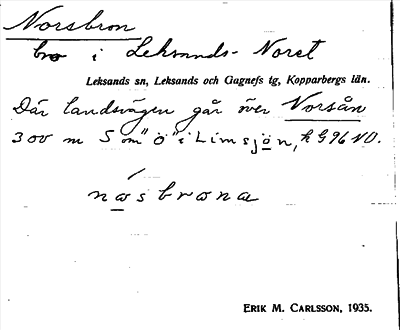 Norsbron
bro i Leksands-Noret
Leksands sn, Leksands och Gagnefs tg, Kopparbergs län.
Där landsvägen går över Norsån
300 m S om "ö" i Limsjön, k G 96 NO.
nɷsbrɷnɷ
ERIK M. CARLSSON, 1935.